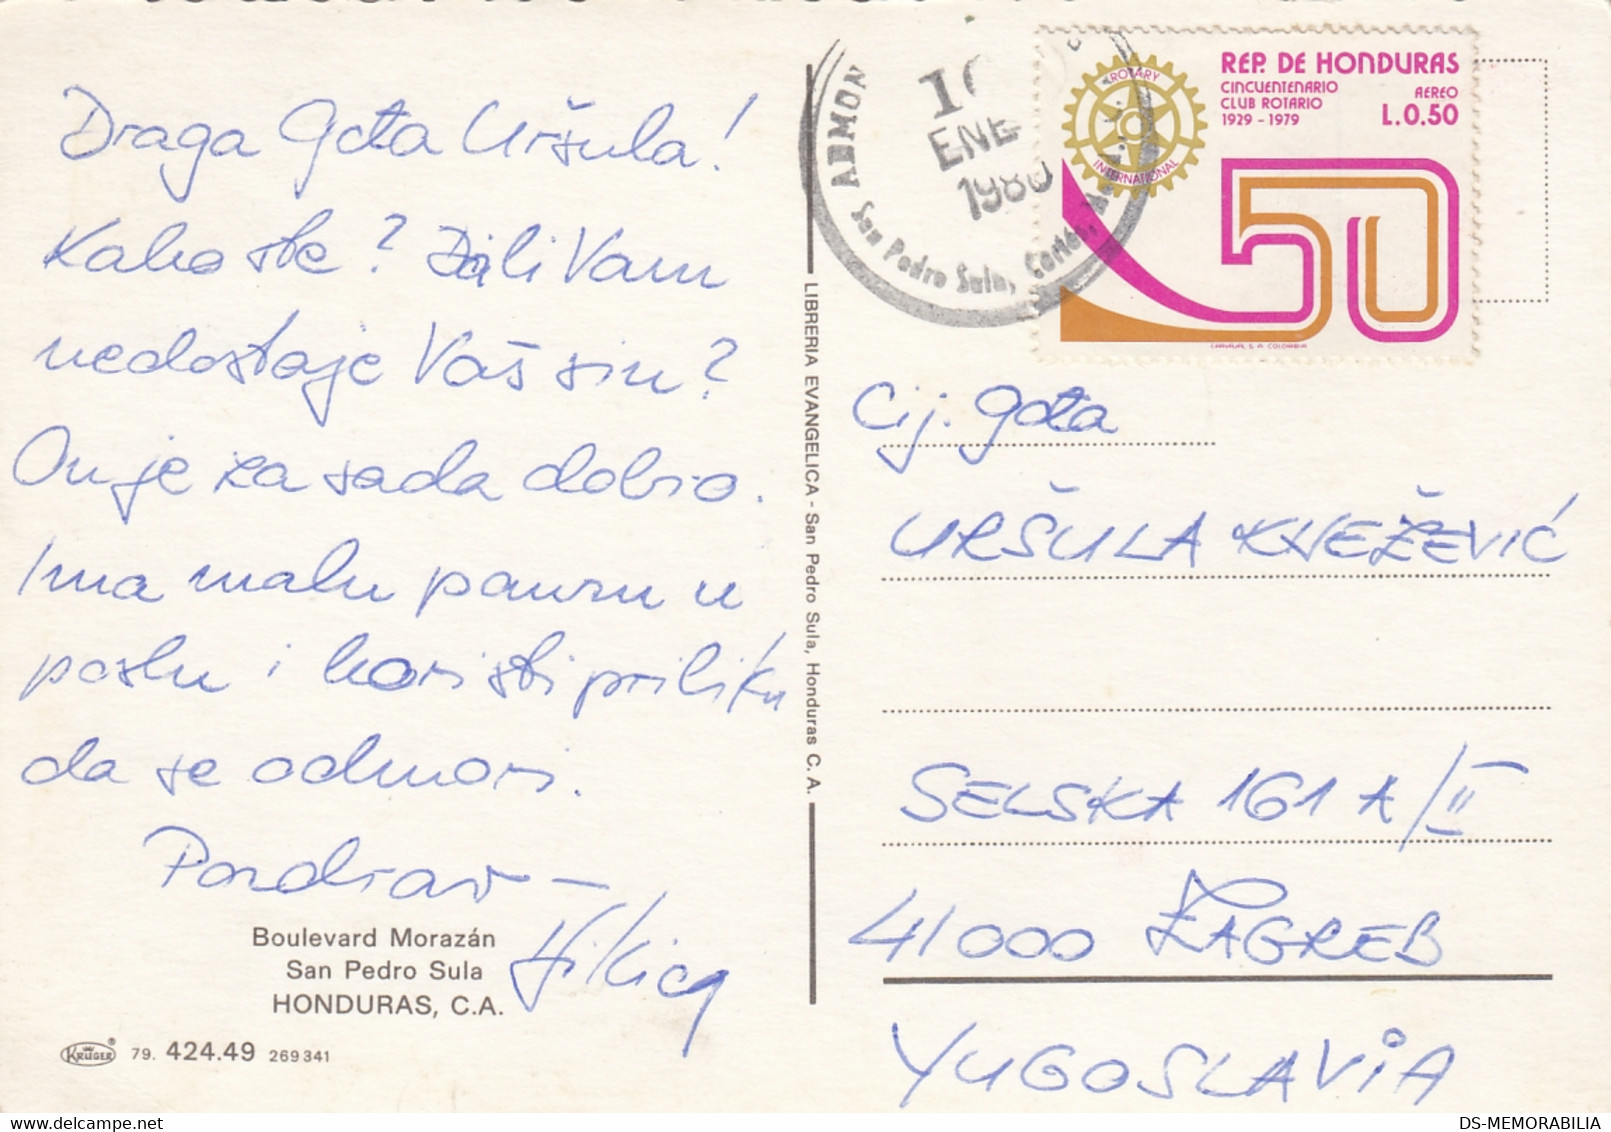 Draga gđa Uršula!
Kako ste? Da li Vam
nedostaje Vaš sin?
On je za sada dobro.
Ima malu pauzu u
poslu i koristi priliku
da se odmori.
Pozdrav –
Boulevard Morazán
San Pedro Sula
HONDURAS, C.A.
KRÜGER® 79. 424.49 269341
LIBRERIA EVANGELICA - San Pedro Sula, Honduras C. A.
ADMON
ENE
San Pedro Sula, Cortés
ROTARY
INTERNATIONAL
REP. DE HONDURAS
CINCUENTENARIO
CLUB ROTARIO
1929 - 1979
AEREO
L.0.50
50
CARVAJAL S. A. COLOMBIA
Cij. gđa
URŠULA KNEŽEVIĆ
SELSKA 161 A/II
41000 ZAGREB
YUGOSLAVIA
DS-MEMORABILIA